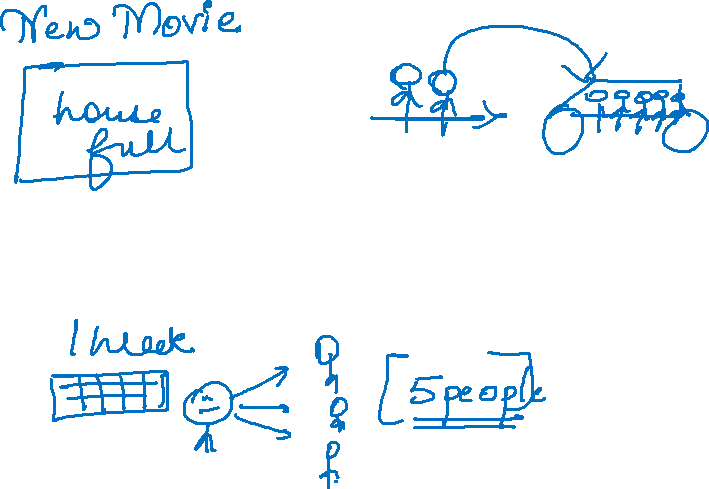 New Movie
house
full
1 week
5 people